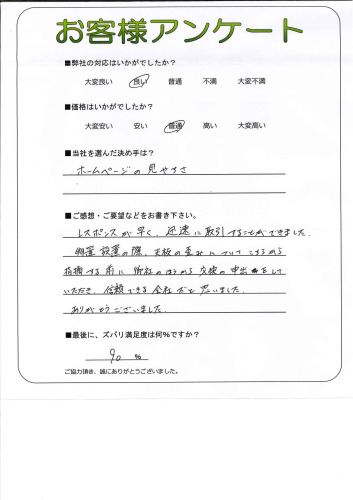 お客様アンケート
■弊社の対応はいかがでしたか？
大変良い 良い 普通 不満 大変不満
■価格はいかがでしたか？
大変安い 安い 普通 高い 大変高い
■当社を選んだ決め手は？
ホームページの見やすさ
■ご感想・ご要望などをお書き下さい。
レスポンスが早く、迅速に取引することができました。
設置の際、天板の歪みについてこちらから
指摘する前に御社のほうから交換の申出をして
いただき、信頼できる会社だと思いました。
ありがとうございました。
■最後に、ズバリ満足度は何%ですか？
90 %
ご協力頂き、誠にありがとうございました。